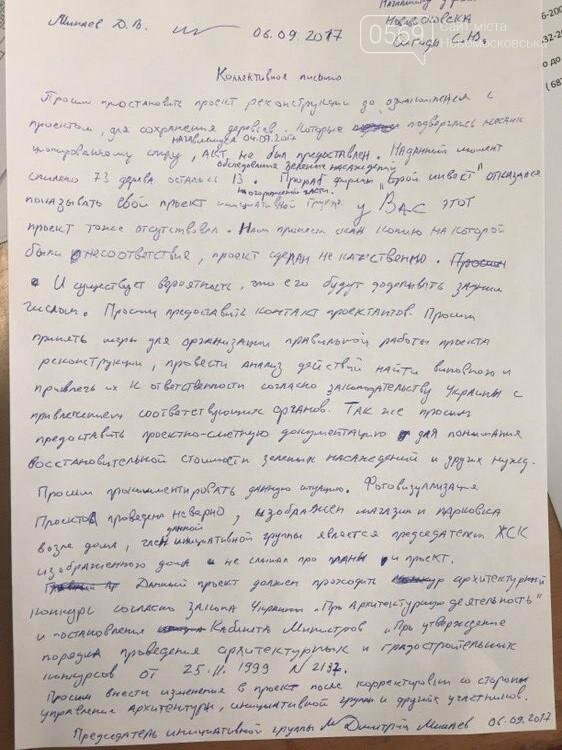 Новомосковска
Минаев Д.В. 06.09.2017
0569 Сайт міста Новомосковська
Коллективное письмо
Просим приостановить проект реконструкции до ознакомления с
проектом, для сохранения деревьев. Которые подверглись несанк
ционированному спилу, начавшимся 04.09.2017 Акт не был предоставлен. На данный момент
обследования зеленых насаждений
спилено 73 дерева осталось 13. Прораб фирмы "Строй инвест" отказался
на огороженной части.
показывать свой проект инициативной группе. У Вас этот
проект тоже отсутствовал. Нам принесли скан копию на которой
были несоответствия, проект сделан не качественно.
И существует вероятность, что его будут доделывать задним
числом. Просим предоставить контакт проектантов. Просим
принять меры для организации правильной работы проекта
реконструкции, провести анализ действий найти виновного и
привлечь их к ответственности согласно законодательству Украины с
привлечением соответствующих органов. Так же просим
предоставить проектно-сметную документацию для понимания
восстановительной стоимости зеленых насаждений и других нужд.
Просим прокомментировать данную ситуацию. Фотовизуализация
Проекта проведена неверно, изображён магазин и парковка
данной
возле дома, член инициативной группы является председателем ЖСК
изображенного дома и не слышал про планы и проект.
Данный проект должен проходить архитектурный
конкурс согласно закона Украины "Про Архитектурную деятельность"
и постановление Кабинета Министров "Про утверждение
порядка проведения архитектурных и градостроительных
конкурсов от 25.11.1999 N 2137.
Просим внести изменения в проект после корректировки со стороны
управления архитектуры, инициативной группы и других участников.
Председатель инициативной группы Дмитрий Минаев 06.09.2017